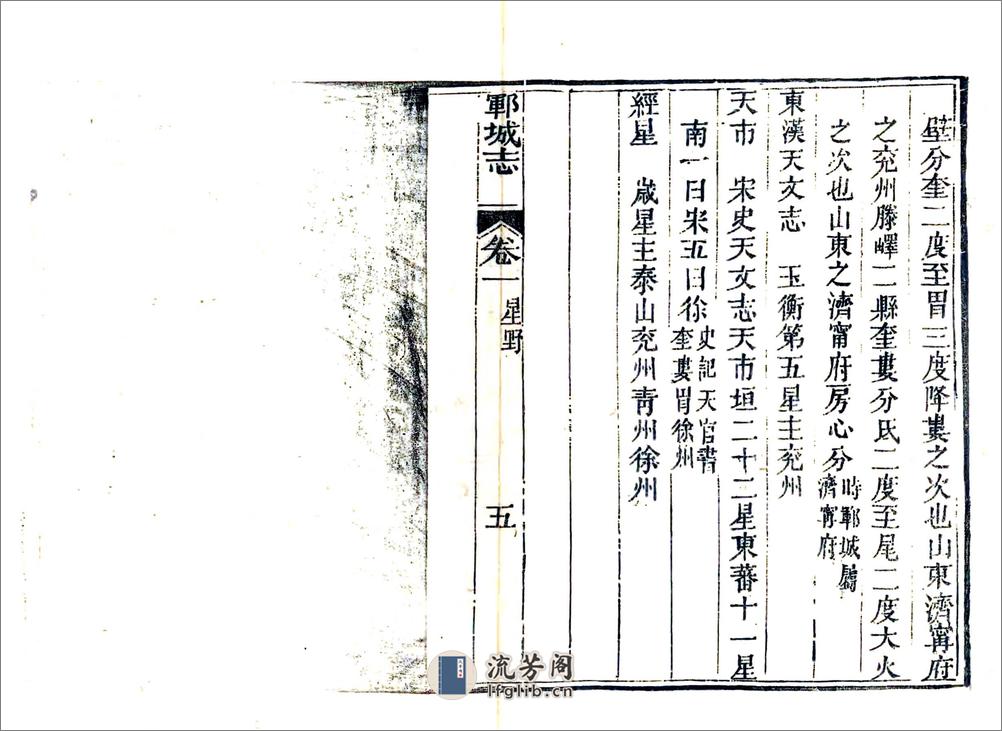 壁分奎二度至胃三度降婁之次也山東濟甯府
之兖州滕嶧二縣奎婁分氐二度至尾二度大火
之次也山東之濟甯府房心分時鄆城屬濟甯府
東漢天文志　玉衡第五星主兖州
天市　宋史天文志天市垣二十二星東蕃十一星
南一曰宋五曰徐史記天官書奎婁胃徐州
經星　歲星主泰山兖州青州徐州
鄆城志　卷一　星野　五
流芳阁
lfglib.cn